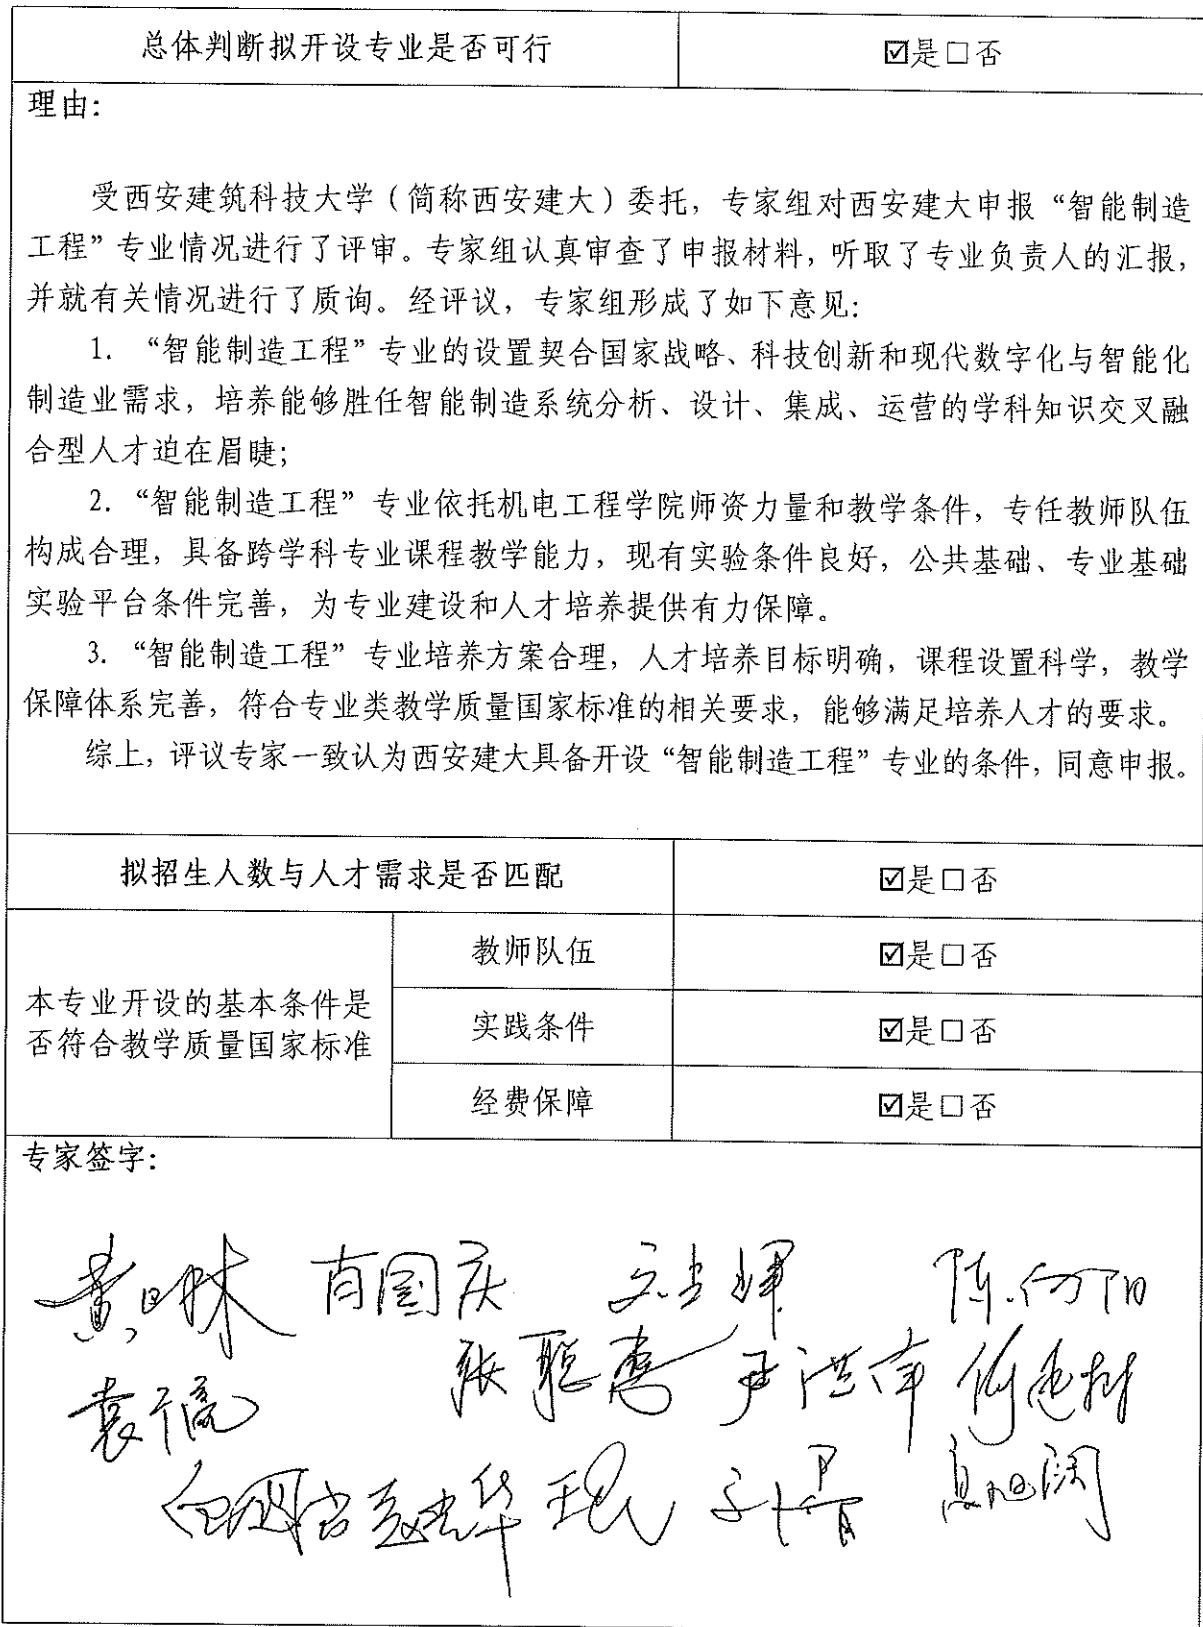 总体判断拟开设专业是否可行 ☑是□否
理由：
受西安建筑科技大学（简称西安建大）委托，专家组对西安建大申报“智能制造
工程”专业情况进行了评审。专家组认真审查了申报材料，听取了专业负责人的汇报，
并就有关情况进行了质询。经评议，专家组形成了如下意见：
1. “智能制造工程”专业的设置契合国家战略、科技创新和现代数字化与智能化
制造业需求，培养能够胜任智能制造系统分析、设计、集成、运营的学科知识交叉融
合型人才迫在眉睫；
2. “智能制造工程”专业依托机电工程学院师资力量和教学条件，专任教师队伍
构成合理，具备跨学科专业课程教学能力，现有实验条件良好，公共基础、专业基础
实验平台条件完善，为专业建设和人才培养提供有力保障。
3. “智能制造工程”专业培养方案合理，人才培养目标明确，课程设置科学，教学
保障体系完善，符合专业类教学质量国家标准的相关要求，能够满足培养人才的要求。
综上，评议专家一致认为西安建大具备开设“智能制造工程”专业的条件，同意申报。
拟招生人数与人才需求是否匹配 ☑是□否
本专业开设的基本条件是
否符合教学质量国家标准
教师队伍 ☑是□否
实践条件 ☑是□否
经费保障 ☑是□否
专家签字：
肖国庆 陈向阳
张聪惠